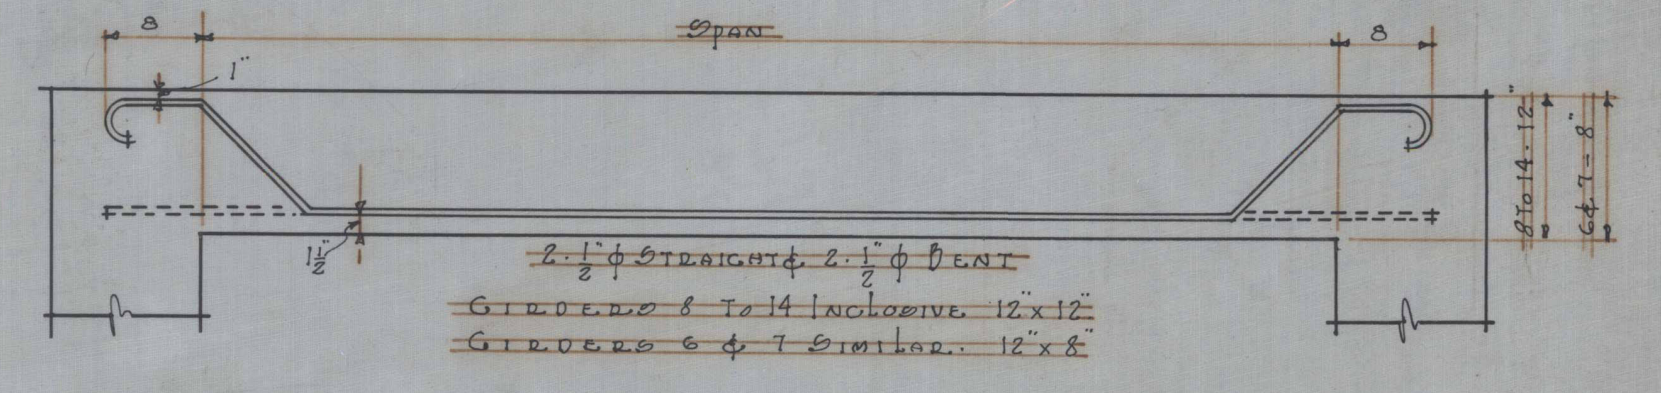 8
SPAN
8
1"
8 TO 14 · 12"
6 & 7 - 8"
1 1/2"
2 · 1/2" ϕ STRAIGHT & 2 · 1/2" ϕ BENT
GIRDERS 8 TO 14 INCLUSIVE 12" x 12"
GIRDERS 6 & 7 SIMILAR. 12" x 8"